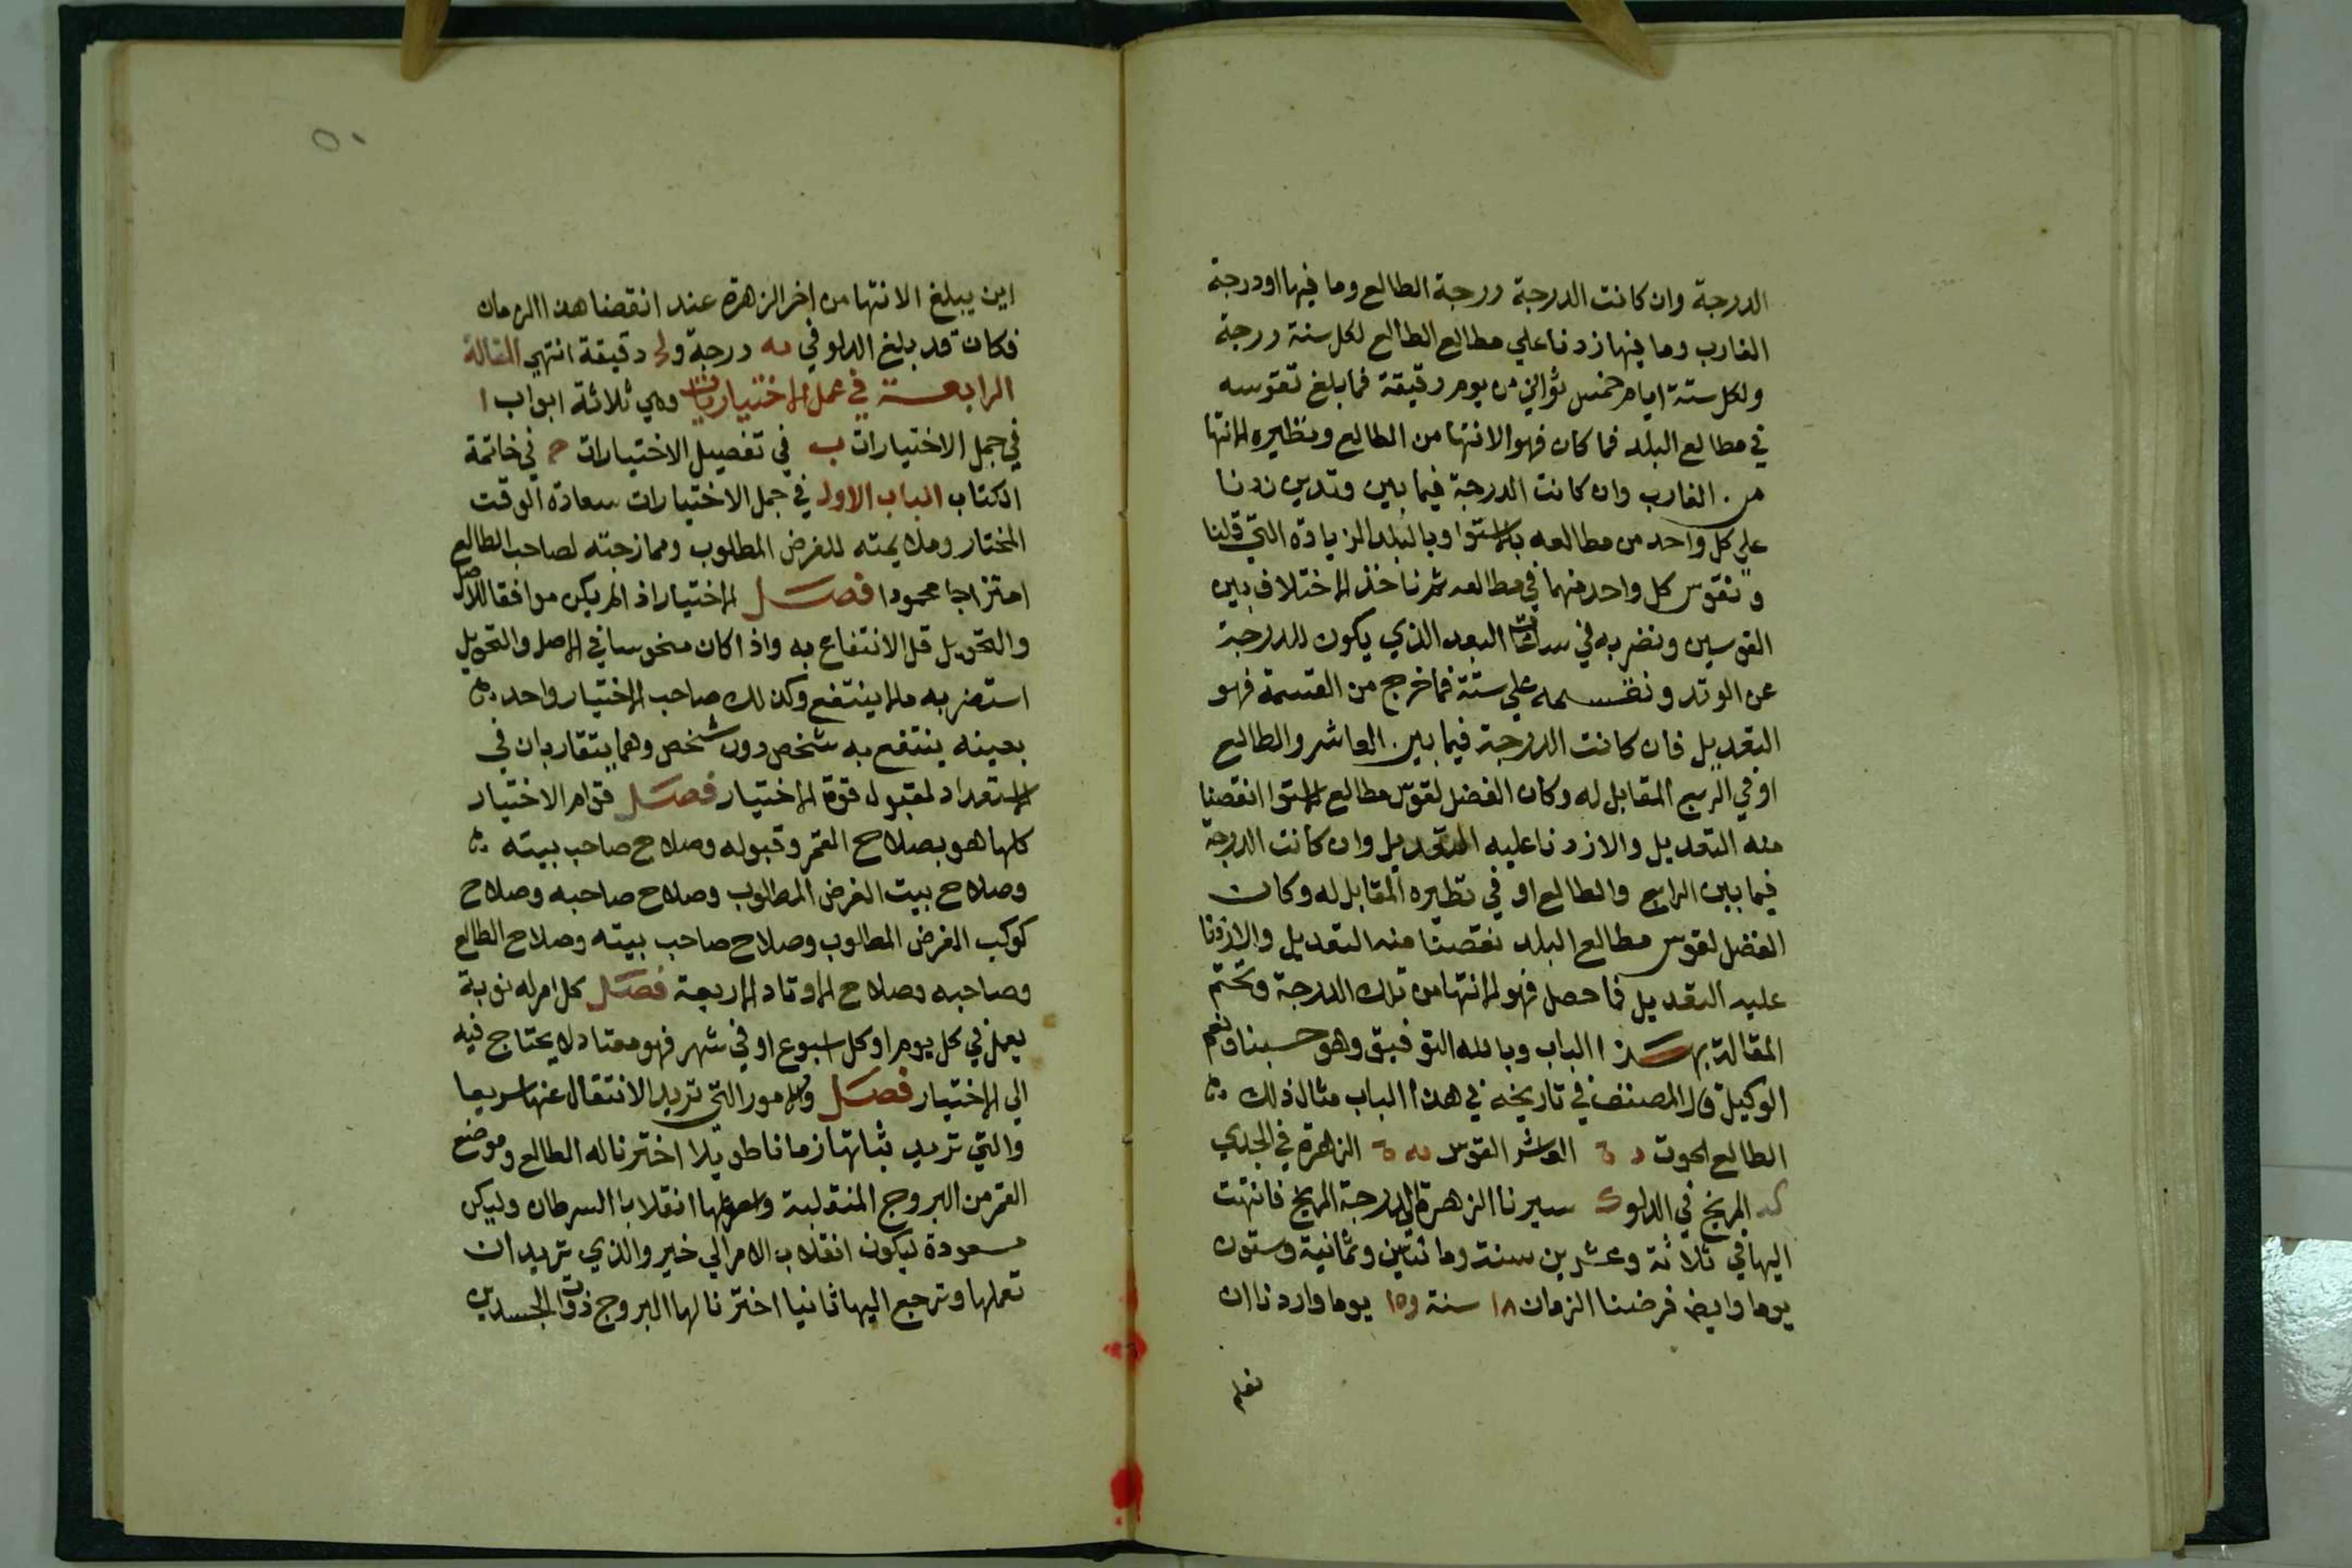 الدرجة وان كانت الدرجة درجة الطالع وما فيها اودرجة
الغارب وما فيها زدنا علي مطالع الطالع لكل سنة درجة
ولكل ستة ايام خمس ثواني من يوم دقيقة فما بلغ تقوسه
في مطالع البلد فما كان فهو الانتها من الطالع ونظيره الانتها
من الغارب وان كانت الدرجة فيما بين وتدين زدنا
علي كل واحد من مطالعه بالاستوا وبالبلد الزيادة التي قلنا
ونقوس كل واحد منهما في مطالعه ثم ناخذ الاختلاف بين
القوسين ونضربه في ساعات البعد الذي يكون للدرجة
عن الوتد ونقسمه علي ستة فما خرج من القسمة فهو
التعديل فان كانت الدرجة فيما بين العاشر والطالع
او في الربع المقابل له وكان الفضل لقوس مطالع الاستوا انقصنا
منه التعديل والا زدنا عليه التعديل وان كانت الدرجة
فيما بين الرابع والطالع او في نظيره المقابل له وكان
الفضل لقوس مطالع البلد نقصنا منه التعديل والا زدنا
عليه التعديل فما حصل فهو الانتها من تلك الدرجة ونختم
المقالة بهذا الباب وبالله التوفيق وهو حسبنا ونعم
الوكيل قال المصنف في تاريخه في هذا الباب مثال ذلك
الطالع الحوت العاشر القوس الزهرة في الجدي
كد المريخ في الدلو ك سيرنا الزهرة الي درجة المريخ فانتهت
اليها في ثلاثة وعشرين سنة ومائتين وثمانية وستون
يوما وايضا فرضنا الزمان ١٨ سنة و١٥ يوما واردنا ان
نعلم
٥٠
اين يبلغ الانتها من اخر الزهرة عند انقضا هذا الزمان
فكان قد بلغ الدلو في درجة و دقيقة انتهي المقالة
الرابعة في عمل الاختيارات وهي ثلاثة ابواب ا
في جمل الاختيارات ب في تفصيل الاختيارات ج في خاتمة
الكتاب الباب الاول في جمل الاختيارات سعادة الوقت
المختار وملايمته للغرض المطلوب وممازجته لصاحب الطالع
امتزاجا محمودا فصل الاختيار اذا لم يكن موافقا للاصل
والتحويل قل الانتفاع به واذا كان منحوسا في الاصل والتحويل
استضر به ولا ينتفع وكذلك صاحب الاختيار واحد
بعينه ينتفع به شخص دون شخص وهما يتقاربان في
الاستعداد لقبول قوة الاختيار فصل قوام الاختيار
كلها هو بصلاح القمر وقبوله وصلاح صاحب بيته
وصلاح بيت الغرض المطلوب وصلاح صاحبه وصلاح
كوكب الغرض المطلوب وصلاح صاحب بيته وصلاح الطالع
وصاحبه وصلاح الاوتاد الاربعة فصل كل امر له نوبة
يعمل في كل يوم او كل اسبوع او في شهر فهو معتاد لا يحتاج فيه
الي الاختيار فصل والامور التي تريد الانتقال عنها سريعا
والتي تريد ثباتها زمانا طويلا اخترنا له الطالع وموضع
القمر من البروج المنقلبة واسهلها انقلابا السرطان وليكن
مسعودة ليكون انقلاب الامر الي خير والذي تريد ان
تعملها وترجع اليها ثانيا اخترنا لها البروج ذوات الجسدين